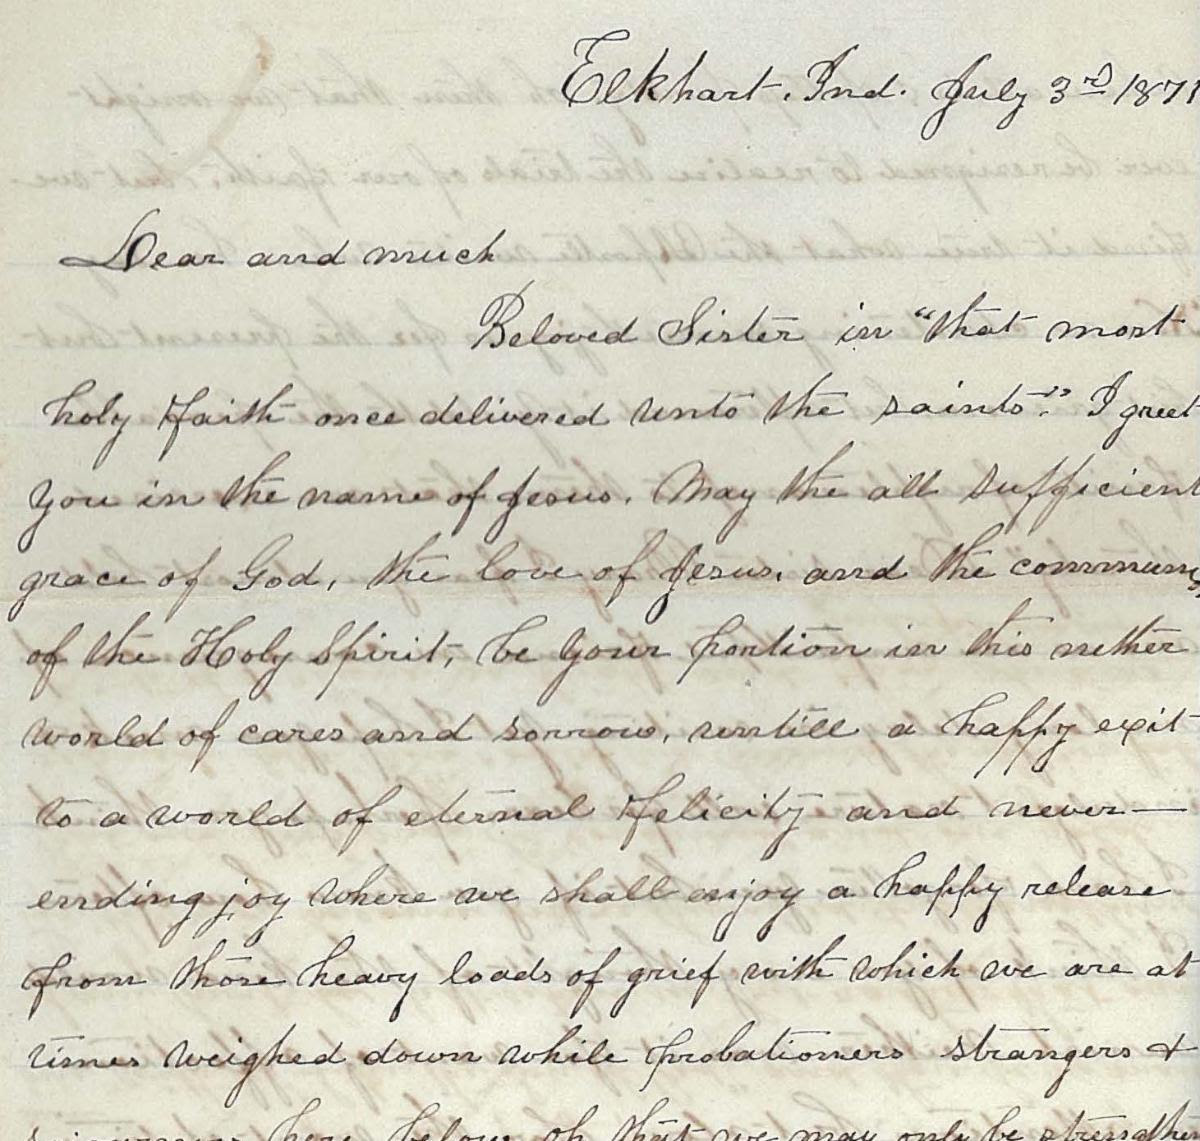 Elkhart. Ind. July 3rd 1871
Dear and much
Beloved Sister in "that most
holy faith once delivered unto the saints." I greet
you in the name of Jesus. May the all sufficient
grace of God, the love of Jesus, and the
of the Holy Spirit, be your portion in this nether
world of cares and sorrow, untill a happy exit
to a world of eternal felicity and never—
ending joy where we shall enjoy a happy release
from those heavy loads of grief with which we are at
times weighed down while probationers strangers &
here below oh that we may only be